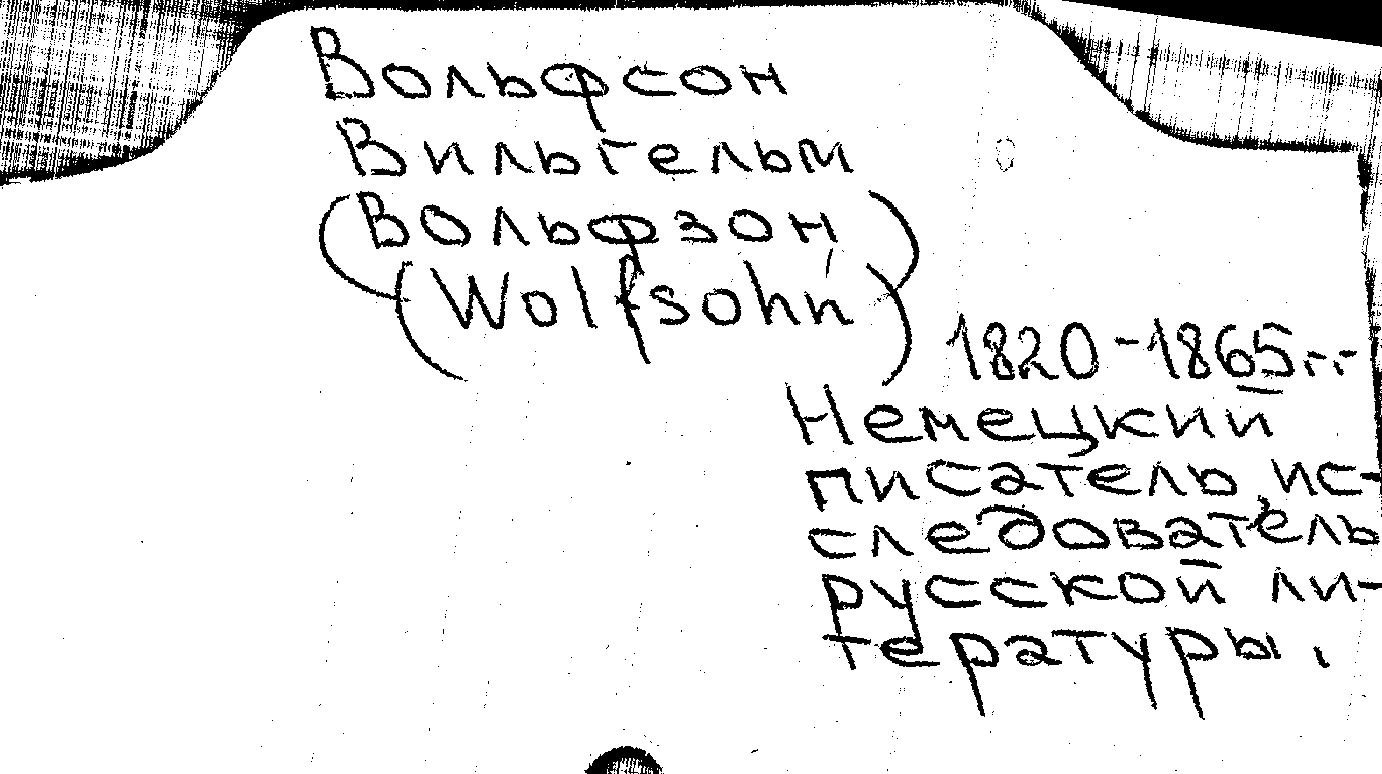 Вольфсон
Вильгельм
(Вольфзон)
(Wolfsohn)
1820-1865г.г.
Немецкий
писатель, ис-
следователь
русской ли-
тературы.